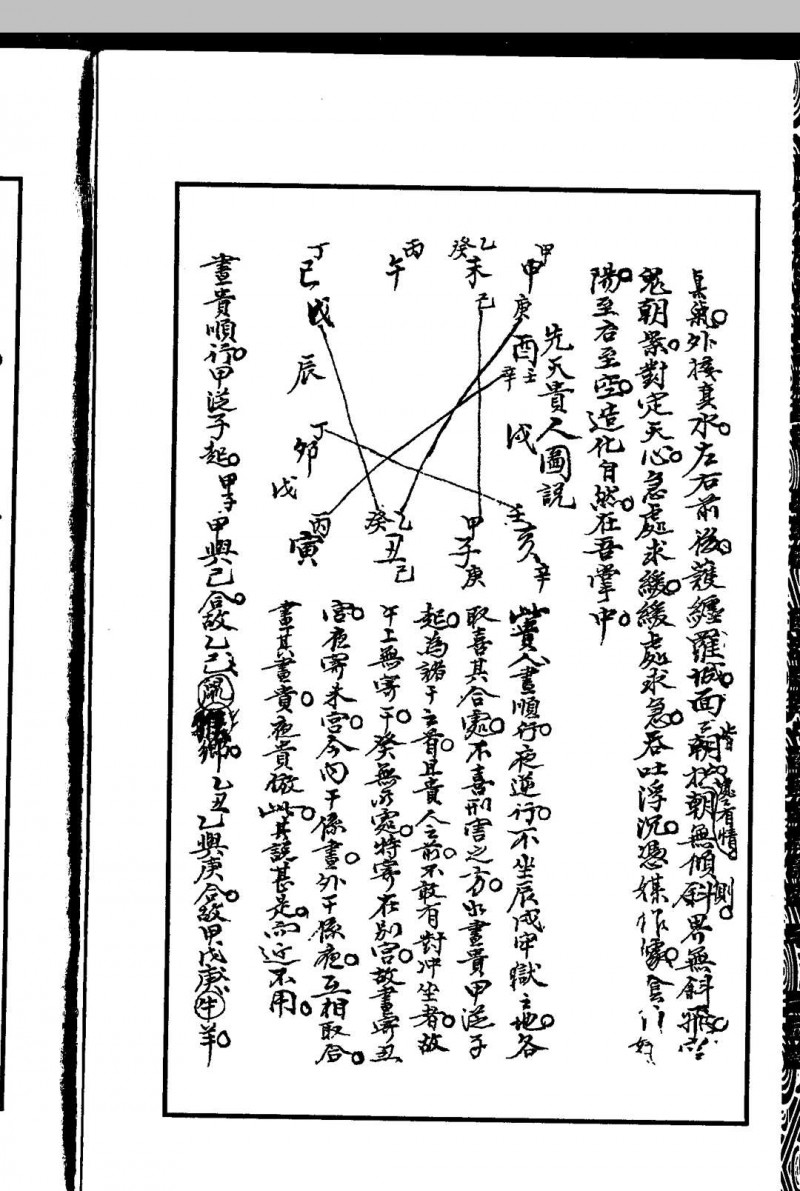 真氣外接真水左右前後護纏羅城面面朝拱朝無傾斜界無斜飛
皆要有情
側
鬼朝案對定天心急處求緩緩處求急吞吐浮沉憑媒作
陽至君至空造化自然在吾掌中
先天貴人圖說
甲
申
庚
酉
壬
辛
戌
癸乙
未
己
丙
午
丁
巳
戊
辰
丁
卯
戊
丙
寅
癸乙
丑
己
甲
子
庚
壬
亥
辛
此貴人晝順行夜逆行不坐辰戌牢獄之地各
取喜其合處不喜刑害之方出晝貴甲從子
起為諸干之首且貴人之前不敢有對冲坐者故
午上無寄干癸無所處特寄在別宮故晝寄丑
宮夜寄未宮今內干係晝外干係夜互相取合
晝其晝貴夜貴倣此其說甚是而近不用
晝貴順行甲從子起甲子甲與己合故乙己鼠
鄉乙丑乙與庚合故甲戊庚牛羊